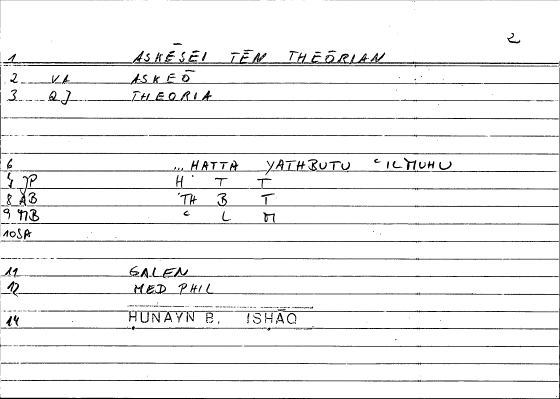 2
1 ASKĒSEI TĒN THEŌRIAN
2 VA ASKEŌ
3 QJ THEORIA
6 ...HATTA YATHBUTU ʿILMUHU
7 JP Ḥ T T
8 AB TH B T
9 MB ʿ L M
10 SA
11 GALEN
12 MED PHIL
14 ḤUNAYN B. ISḤĀQ